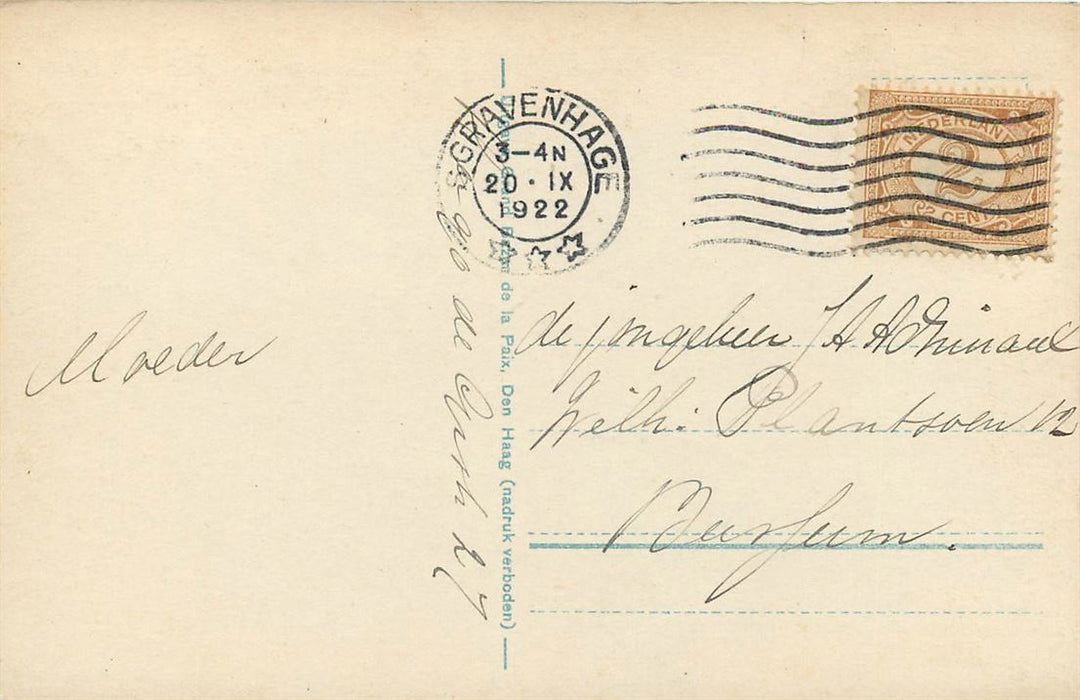 'SGRAVENHAGE
3-4N
20·IX
1922
NEDERLAND
2
2 CENT
Moeder
de jongeheer
Wilh. Plantsoen 12
Bussum.
de la Paix, Den Haag (nadruk verboden)
de 27